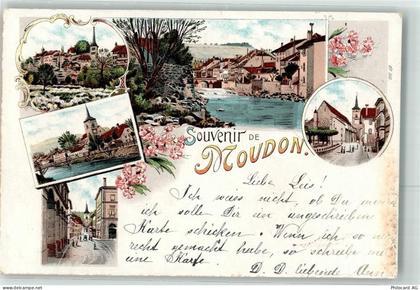 SOUVENIR DE
MOUDON.
Liebe Leis!
Ich weis nicht, ob Du Meinst
ich solle Dir ein angeschrieben
Karte schicken. Wenn ich so nicht
recht gemacht habe, so schreibe mir
eine Karte.
D. D. liebende Ann
www.postkarten-archiv.de
picclick